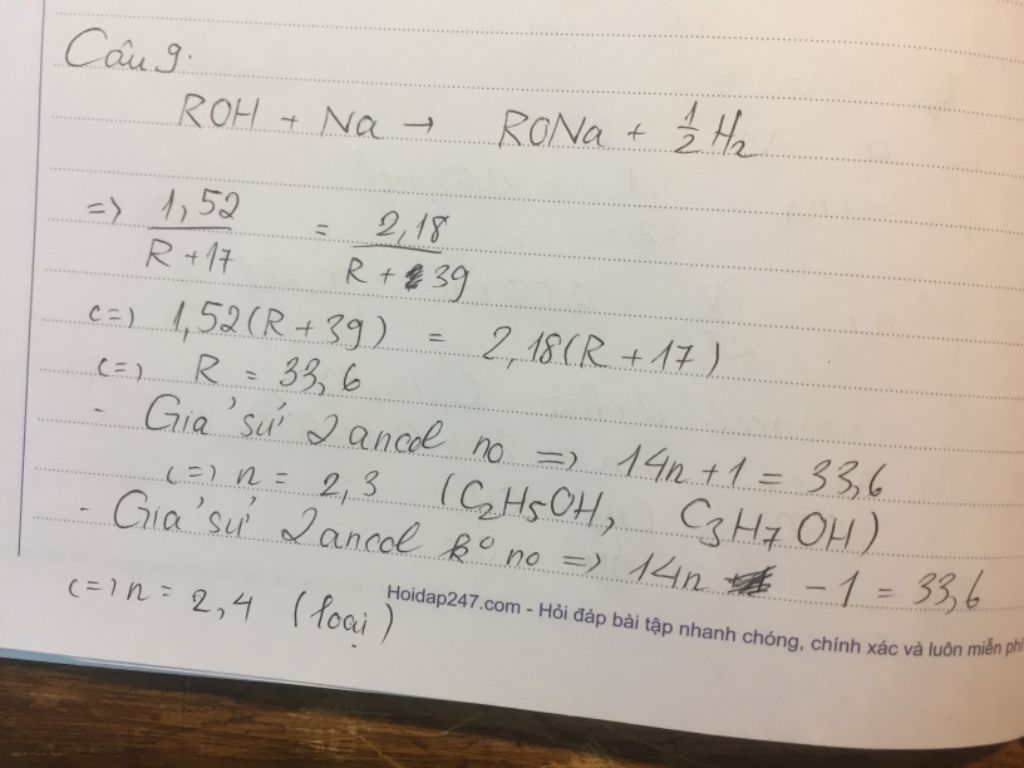 Câu 9:
ROH + Na → RONa + 1/2 H₂
=> 1,52/(R + 17) = 2,18/(R + 39)
<=> 1,52(R + 39) = 2,18(R + 17)
<=> R = 33,6
- Giả sử 2 ancol no => 14n + 1 = 33,6
<=> n = 2,3 (C₂H₅OH, C₃H₇OH)
- Giả sử 2 ancol k⁰ no => 14n - 1 = 33,6
<=> n = 2,4 (loại)
Hoidap247.com - Hỏi đáp bài tập nhanh chóng, chính xác và luôn miễn phí